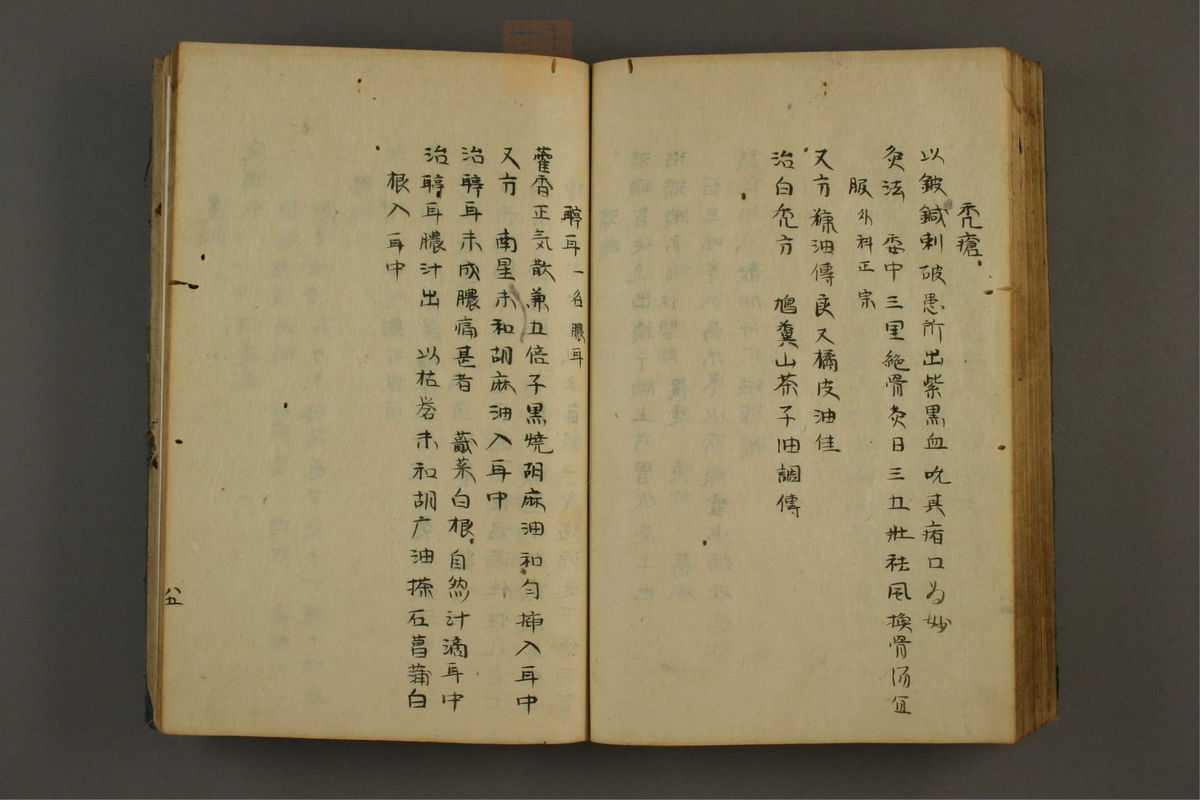 禿瘡
以鈹鍼刺破患所出紫黒血吮其瘡口為妙
灸法 委中三里絶骨灸日三五壮祛風換骨湯宜
服外科正宗
又方 猪油傅良又橘皮油佳
治白禿方 鳩糞山茶子油調傅
聤耳一名膿耳
藿香正気散兼五倍子黒焼胡麻油和匀挿入耳中
又方 南星末和胡麻油入耳中
治聤耳未成膿痛甚者 蕺菜白根自然汁滴耳中
治聤耳膿汁出 以枯礬末和胡广油搽石菖蒲白
根入耳中
八五